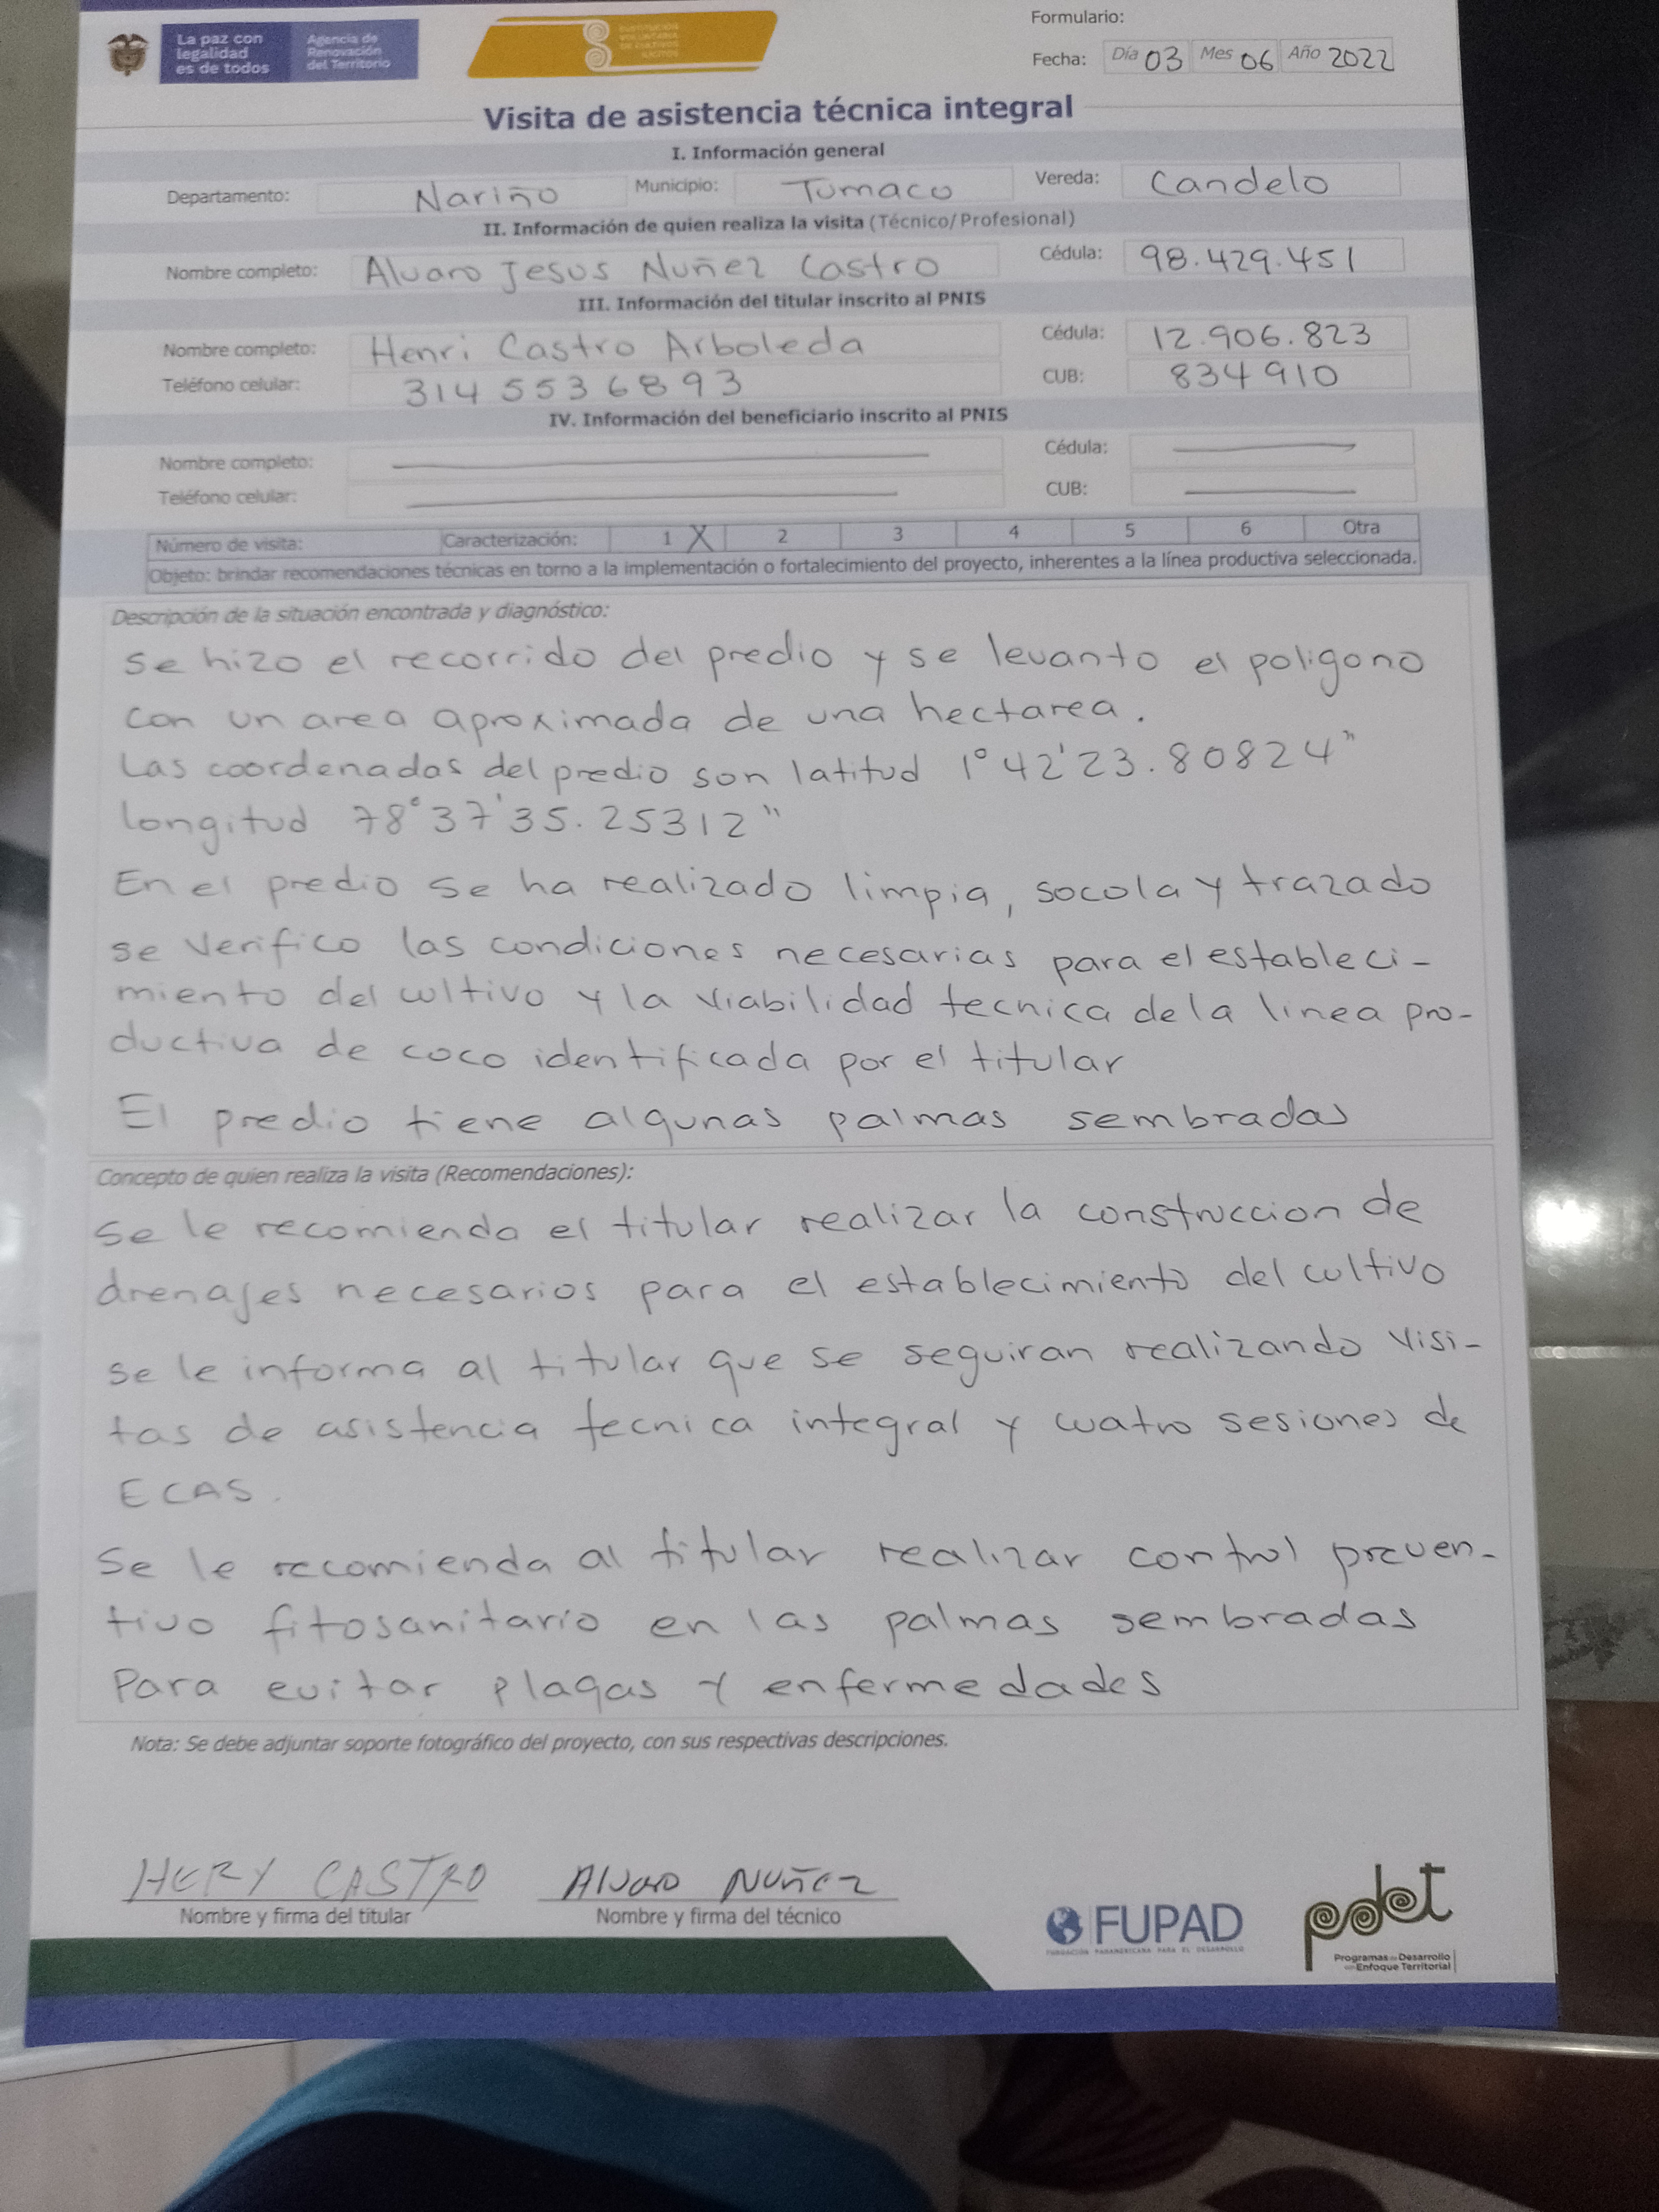 La paz con
legalidad
es de todos
Agencia de
Renovación
del Territorio
Formulario:
Fecha: Día 03 Mes 06 Año 2022
Visita de asistencia técnica integral
I. Información general
Departamento: Nariño Municipio: Tumaco Vereda: Candelo
II. Información de quien realiza la visita (Técnico/Profesional)
Nombre completo: Alvaro Jesus Nuñez Castro Cédula: 98.429.451
III. Información del titular inscrito al PNIS
Nombre completo: Henri Castro Arboleda Cédula: 12.906.823
Teléfono celular: 3145536893 CUB: 834910
IV. Información del beneficiario inscrito al PNIS
Nombre completo: Cédula:
Teléfono celular: CUB:
Número de visita: Caracterización: 1 X 2 3 4 5 6 Otra
Objeto: brindar recomendaciones técnicas en torno a la implementación o fortalecimiento del proyecto, inherentes a la línea productiva seleccionada.
Descripción de la situación encontrada y diagnóstico:
Se hizo el recorrido del predio y se levanto el poligono
con un area aproximada de una hectarea.
Las coordenadas del predio son latitud 1°42'23.80824"
longitud 78°37'35.25312"
En el predio se ha realizado limpia, socola y trazado
se verifico las condiciones necesarias para el estableci-
miento del cultivo y la viabilidad tecnica de la linea pro-
ductiva de coco identificada por el titular
El predio tiene algunas palmas sembradas
Concepto de quien realiza la visita (Recomendaciones):
Se le recomienda el titular realizar la construccion de
drenajes necesarios para el establecimiento del cultivo
se le informa al titular que se seguiran realizando visi-
tas de asistencia tecnica integral y cuatro sesiones de
ECAS.
Se le recomienda al titular realizar control preven-
tivo fitosanitario en las palmas sembradas
Para evitar plagas y enfermedades
Nota: Se debe adjuntar soporte fotográfico del proyecto, con sus respectivas descripciones.
HERY CASTRO Alvaro Nuñez
Nombre y firma del titular Nombre y firma del técnico
FUPAD
FUNDACIÓN PANAMERICANA PARA EL DESARROLLO
pdet
Programas de Desarrollo
con Enfoque Territorial